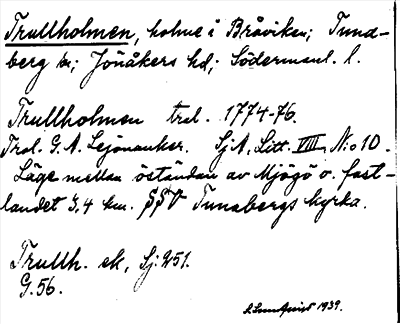 Trullholmen, holme i Bråviken; Tuna-
berg sn; Jönåkers hd; Södermanl. l.
Trullholmen tral. 1774-76.
Tral. G. A. Lejonanker. SjA, Litt. VIII. N:o 10.
Läge mellan öständan av Mjögö o. fast-
landet 3,4 km. SSV Tunabergs kyrka.
Trullh. ek, Sj: 251.
G. 56.
1939.